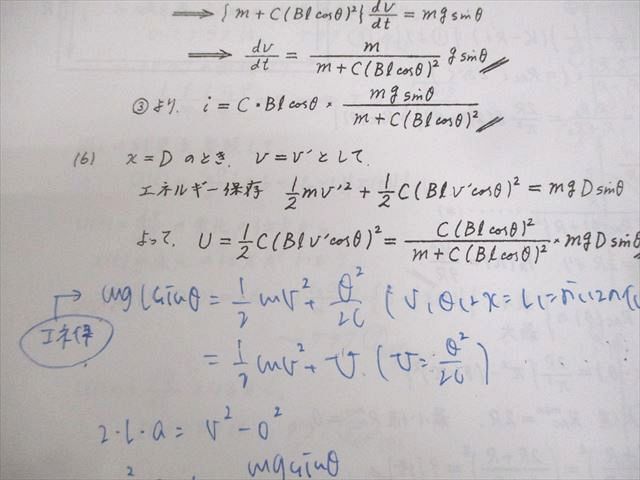 ⟹ {m + C(Blcosθ)²} dv/dt = mg sinθ
⟹ dv/dt = m / (m + C(Blcosθ)²) g sinθ
③より. i = C・Bl cosθ × mg sinθ / (m + C(Blcosθ)²)
(6) x = D のとき. v = v' として.
エネルギー保存 1/2 mv'² + 1/2 C(Blv'cosθ)² = mgD sinθ
よって. U = 1/2 C(Blv'cosθ)² = C(Blcosθ)² / (m + C(Blcosθ)²) × mgD sinθ
→ mgl sinθ = 1/2 mv² + Q²/2C
エネ保
= 1/2 mv² + U. (U = Q²/2C)
2・l・a = v² - 0²
mg sinθ